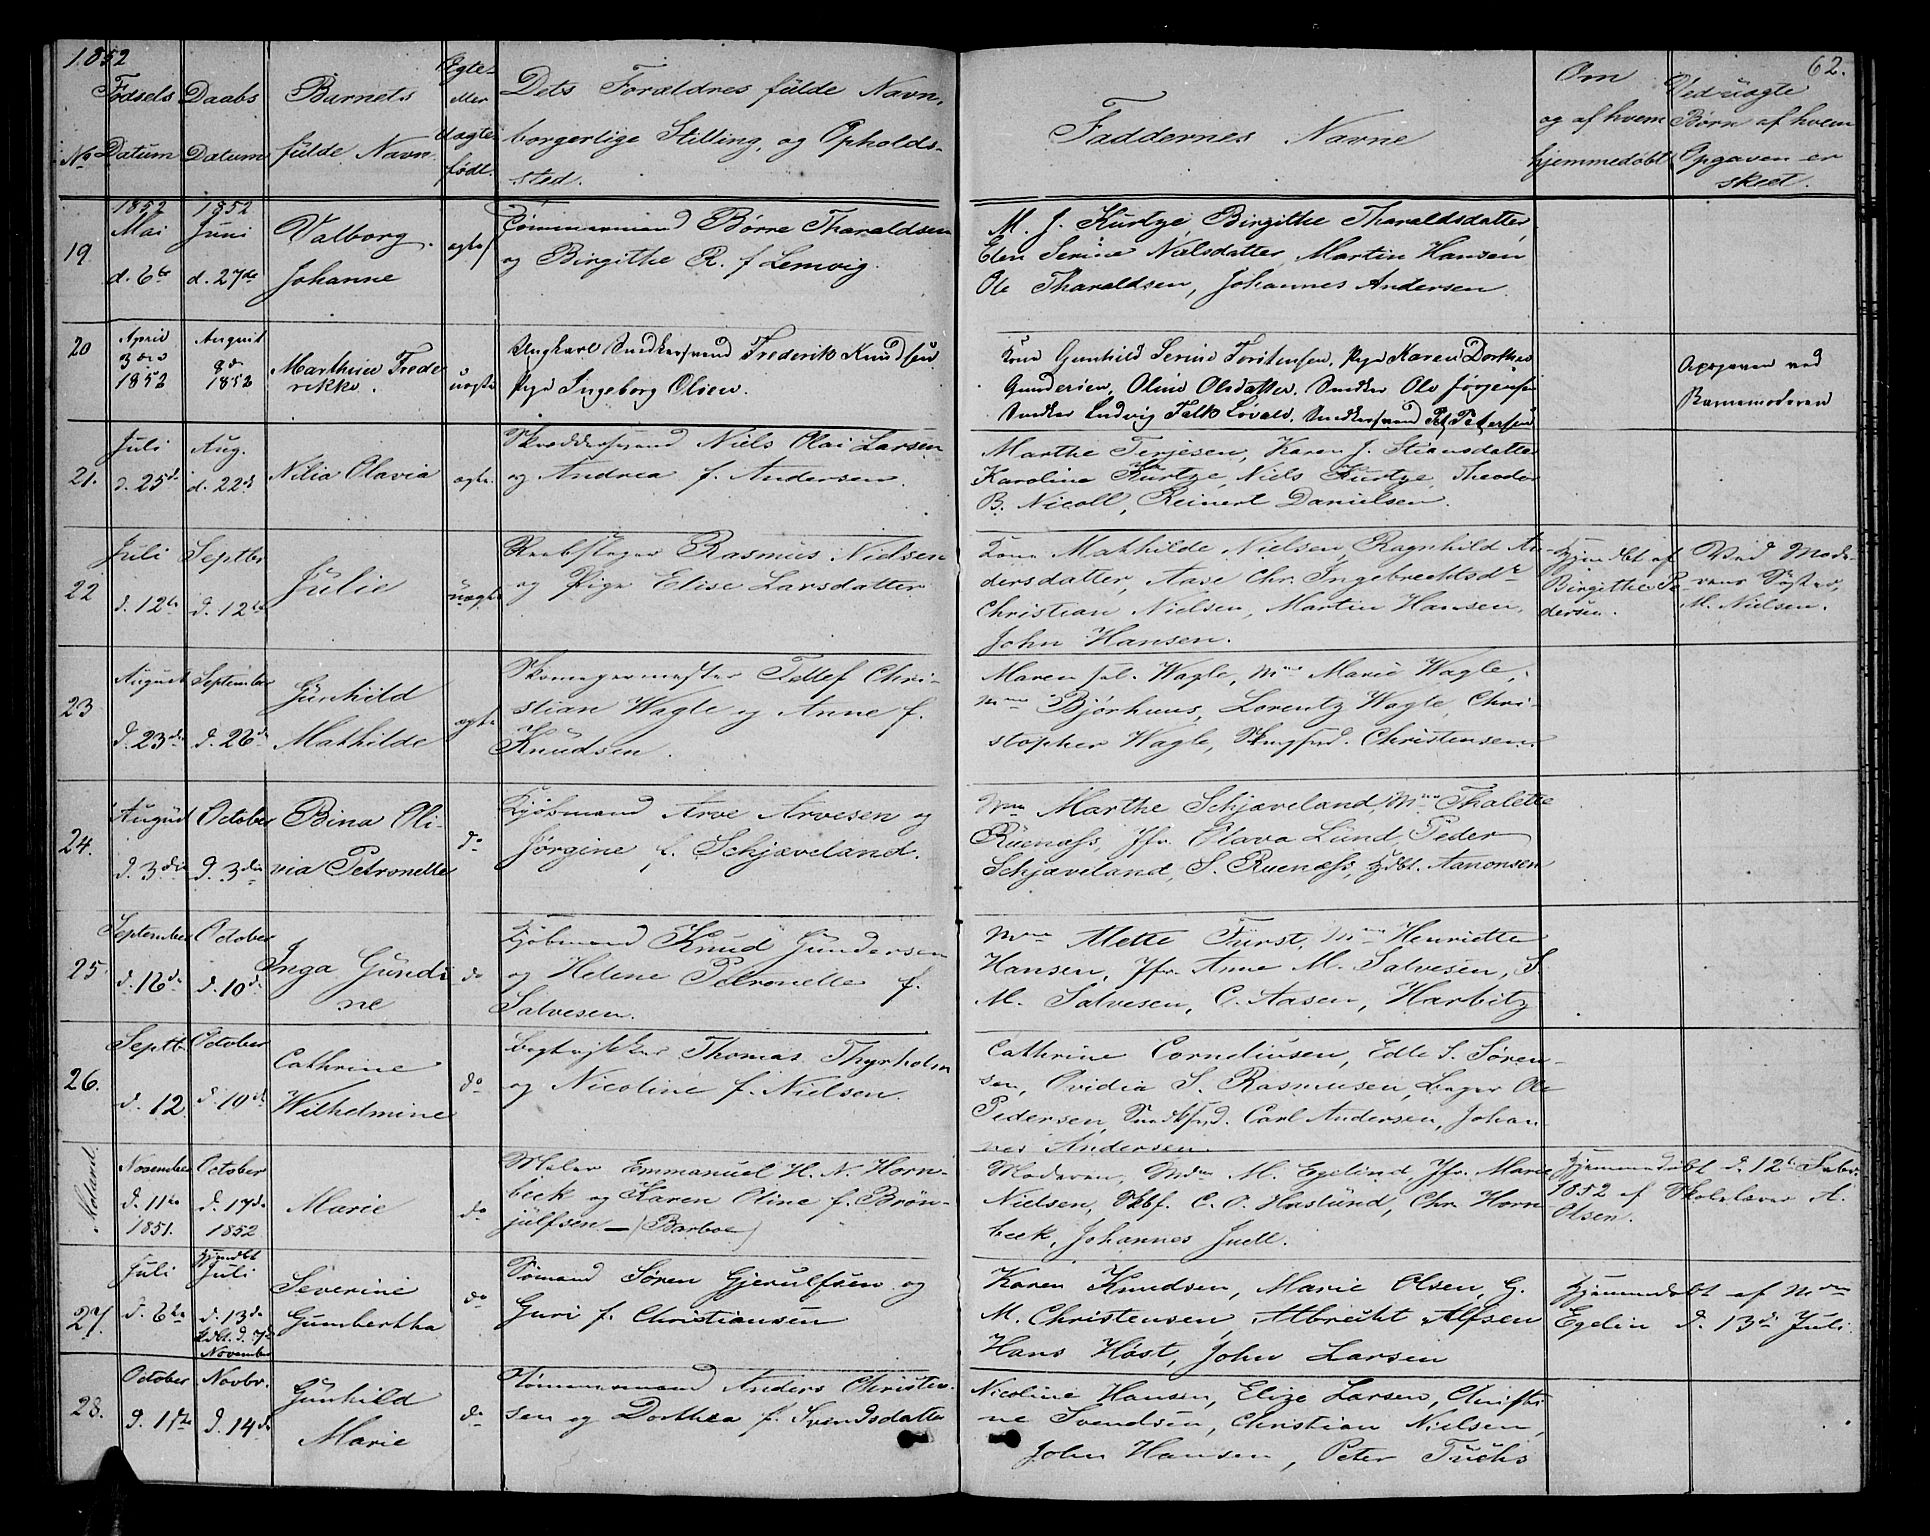 1852
62.
No Fødsels Datum
Daabs Datum
Barnets fulde Navn
Ægte eller uægte født.
Dets Forældres fulde Navn,
borgerlige Stilling, og Opholds-
sted.
Faddernes Navne
Om
og af hvem
hjemmedøbt
Ved uægte
Børn af hvem
Opgaven er
skeet.
19
1852 Mai d. 6te
1852 Juni d. 27de
Valborg
Johanne
ægte
Tømmermand Børre Tharaldsen
og Birgithe R. f Lemvig.
M. J. Kurtze, Birgithe Tharaldsdatter,
Elen Serine Nielsdatter, Martin Hansen
Ole Tharaldsen, Johannes Andersen.
20
April 3die 1852
August 8de 1852
Marthine Frede
rikke.
uægte
Ungkarl Snedkersvend Frederik Knudsen
Pige Ingeborg Olsen.
Kone Gunhild Serine Torstensen, Pige Karen Dorthea
Gundersen, Oline Olsdatter. Snedker Ole Jørgensen
Snedker Ludvig Falk Løvald. Snedkersvend Petersen
Opgiven ved
Barnemoderen
21.
Juli d. 25de
Aug. d. 22de
Nilia Olavia
ægte
Skræddersvend Niels Olai Larsen
og Andrea f. Andersen.
Marthe Terjesen, Karen J. Stiansdatter
Karoline Kurtze, Niels Kurtze, Theodor
B. Nicoll, Reinert Danielsen.
22
Juli d. 12te
Septbr d. 12te
Julie
uægte
Reebslager Rasmus Nielsen
og Pige Elise Larsdatter
Kone Mathilde Nielsen, Ragnhild An-
dersdatter, Aase Chr. Ingebrechtsdr
Christian Nielsen, Martin Hansen,
John Hansen.
Hjemdbt af
Birgithe Pe-
dersen.
Ved Mode-
rens Søster,
M. Nielsen.
23
August d. 23de
September d. 26de
Gunhild
Mathilde
ægte
Skomagermester Tellef Chri-
stian Wagle og Anne f.
Knudsen.
Maren sal. Wagle, Mme Marie Wagle,
Mme Bjørhuus, Lorentz Wagle, Chri-
stopher Wagle, Christensen.
24.
August d. 3die
October d. 3die
Bina Oli-
via Petronelle
do
Kjøbmand Arve Arvesen og
Jørgine f. Schjæveland.
Mme Marthe Schjæveland, Mme Thalette
Ruenæss, Jfr. Olava Lund, Peder
Schjæveland, S. Ruenæss, Aanonsen
25
September d. 16de
October d. 10de
Inga Gundi
ne
do
Kjøbmand Knud Gundersen
og Helene Petronelle f.
Salvesen.
Mme Mette Fürst, Mme Henriette
Hansen, Jfr. Anne M. Salvesen, S.
M. Salvesen, C. Aasen, Harbitz
26.
Septbr d. 12
October d. 10de
Cathrine
Wilhelmine
do
Thomas Thyrholm
og Nicoline f. Nielsen.
Cathrine Corneliusen, Edle S. Søren-
sen, Ovidia S. Rasmusen, Ole
Pedersen, Carl Andersen, Johan
nes Andersen.
Moland.
November d. 11te 1851.
October d. 17de 1852
Marie
do
Maler Emmanuel H. N. Horn-
beck og Karen Oline f. Brön-
julfsen — (Barboe)
Moderen, Mdm M. Egeland, Jfr. Marie
Nielsen, C. O. Haslund, Chr. Horn
beck, Johannes Juell.
Hjemmedøbt d. 12te
1852 af Skolelærer A.
Olsen.
27.
Juli d. 6te
Hjemdbt Juli d. 13de
d. 7de November
Severine
Gumbertha
do
Sømand Søren Gjerulfsen og
Guri f. Christiansen
Karen Knudsen, Marie Olsen, G.
M. Christensen, Albrecht Alfsen
Hans Høst, John Larsen
Hjemmedøbt af Mdm
Egelin d. 13de Juli.
28.
October
Novbr. d. 14de
Gunhild
Marie
do
Tømmermand Anders Christen-
sen og Dorthea f. Svendsdatter
Nicoline Hansen, Elize Larsen, Christi
ne Svendsen, Christian Nielsen,
John Hansen, Peter Fuchs